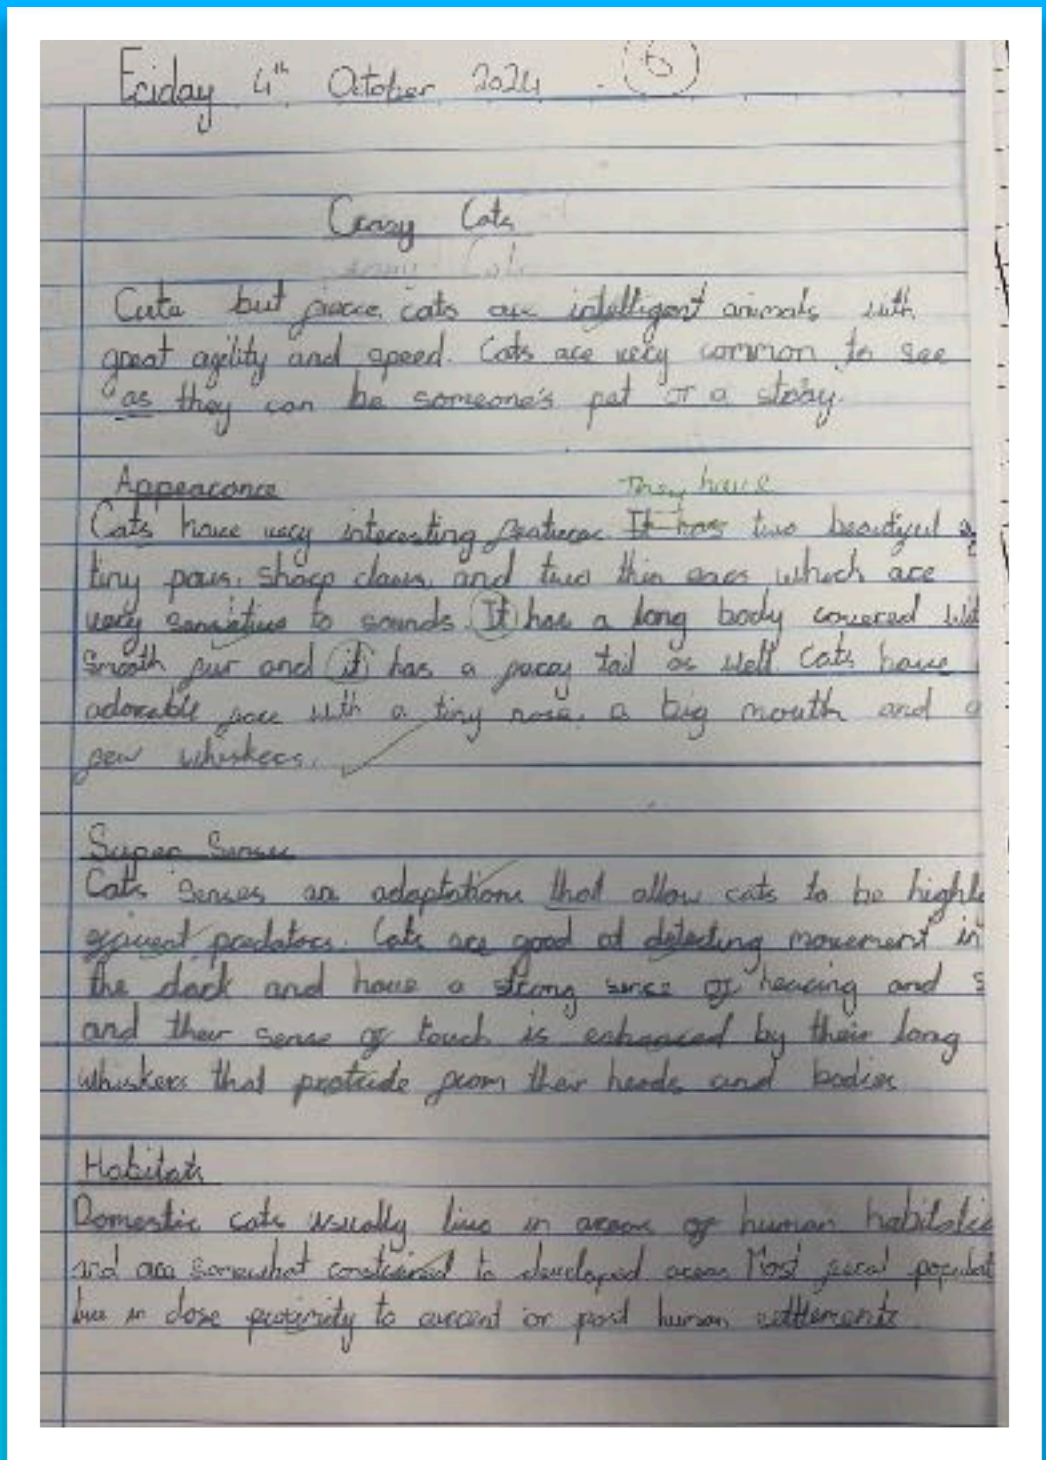 Friday 4th October 2024
Crazy Cats
Cute but fierce, cats are intelligent animals with
great agility and speed. Cats are very common to see
as they can be someone's pet or a stray.
Appearance
They have
Cats have very interesting features. It has two beautiful
tiny paws, sharp claws, and two thin ears which are
very sensitive to sounds. It has a long body covered
smooth fur and it has a furry tail as well. Cats have
adorable face with a tiny nose, a big mouth and a
few whiskers.
Super Senses
Cats senses are adaptations that allow cats to be
predators. Cats are good at detecting movement in
the dark and have a strong sense of hearing and
and their sense of touch is enhanced by their long
whiskers that protrude from their heads and bodies
Habitats
Domestic cats usually live in areas of human
and are somewhat to developed areas. Most feral
live in close proximity to current or past human settlements